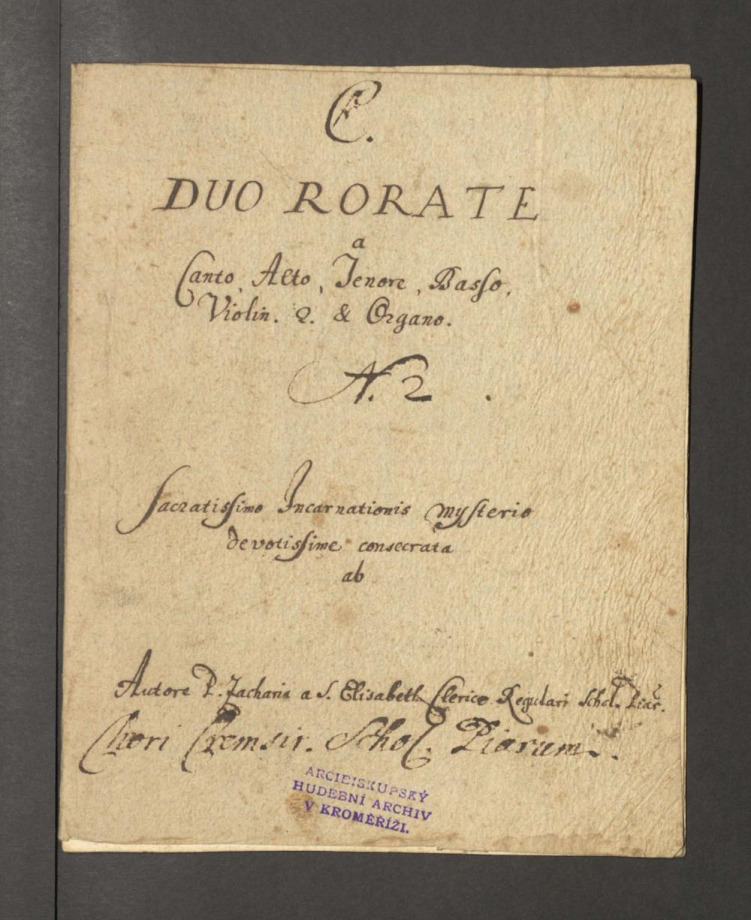 C.
DUO RORATE
a
Canto, Alto, Tenore, Basso,
Violin. 2. & Organo.
N. 2.
sacratissimo Incarnationis mysterio
devotissime consecrata
ab
Autore P. Zacharia a S. Elisabeth Clerico Regulari Schol. Piar.
Chori Cremsir. Schol. Piarum.
ARCIBISKUPSKÝ
HUDEBNÍ ARCHIV
V KROMĚŘÍŽI.